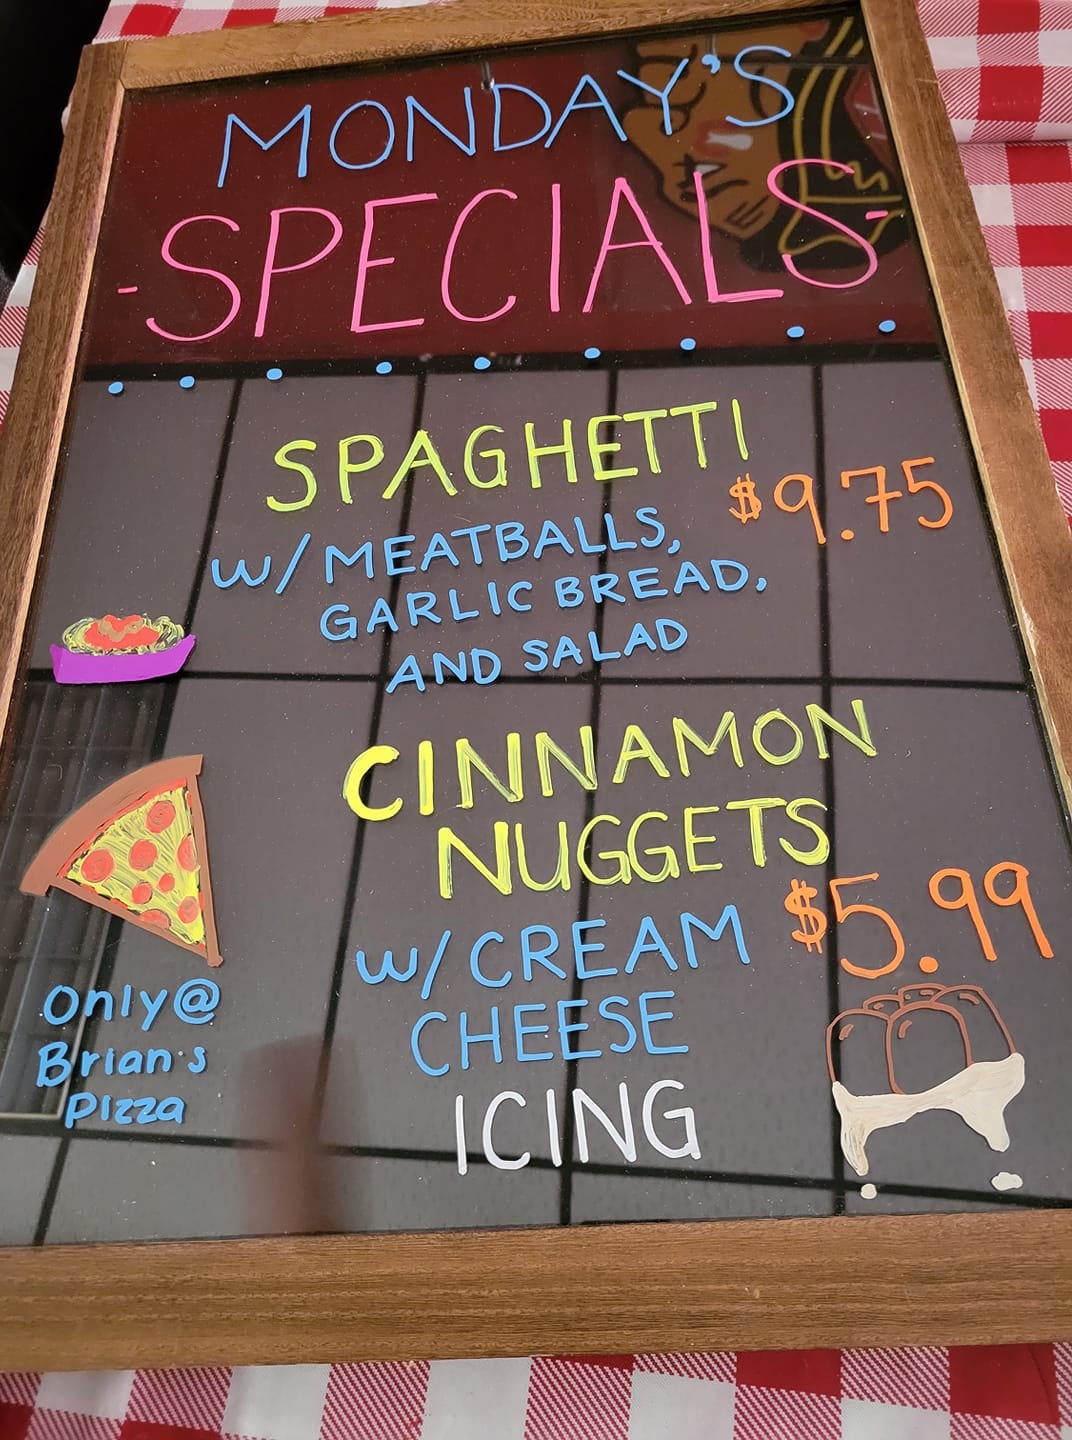 MONDAY'S
-SPECIALS-
SPAGHETTI
$9.75
W/ MEATBALLS,
GARLIC BREAD,
AND SALAD
CINNAMON
NUGGETS
$5.99
W/ CREAM
CHEESE
ICING
Only @
Brian's
Pizza